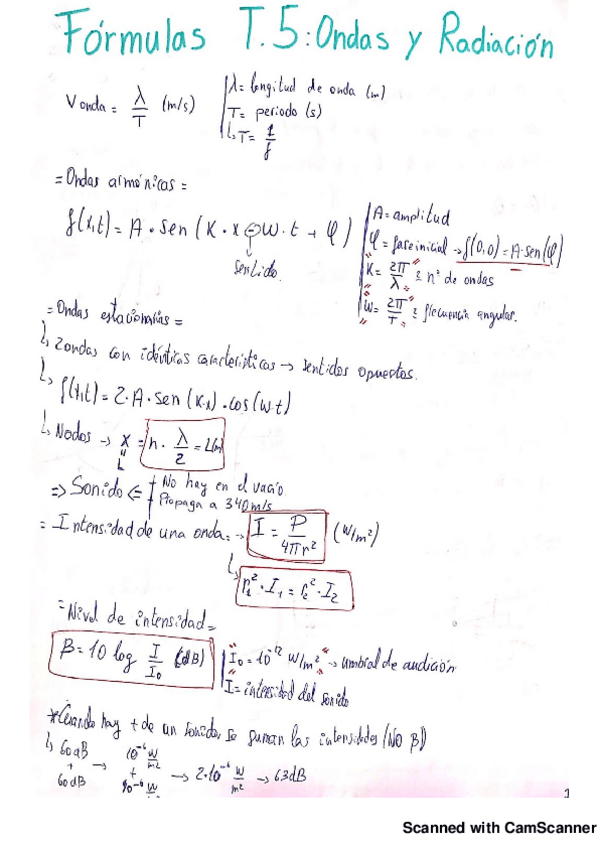 Fórmulas T.5: Ondas y Radiación
V onda = λ/T (m/s)
λ = longitud de onda (m)
T = periodo (s)
↳ T = 1/f
= Ondas armónicas =
f(x,t) = A · sen (K · x ⊖ W · t + φ)
↓
sentido.
A = amplitud
φ = fase inicial → f(0,0) = A · sen(φ)
"K = 2π/λ" : nº de ondas
"W = 2π/T" : frecuencia angular.
= Ondas estacionarias =
↳ 2 ondas con idénticas características → sentidos opuestos.
↳ f(x,t) = 2 · A · sen (K·x) · cos (w·t)
↳ Nodos → x = n · λ/2 =
"
L
=> Sonido <=
No hay en el vacío
Propaga a 340 m/s
= Intensidad de una onda. → I = P/4πr² (W/m²)
↳ r₁² · I₁ = r₂² · I₂
= Nivel de intensidad =
β = 10 log I/I₀ (dB)
"I₀ = 10⁻¹² W/m²" → umbral de audición
I = intensidad del sonido
*Cuando hay + de un sonido, se suman las intensidades (NO β)
↳ 60 dB + 60 dB → 10⁻⁶ W/m² + 10⁻⁶ W → 2·10⁻⁶ W/m² → 63 dB
1
Scanned with CamScanner